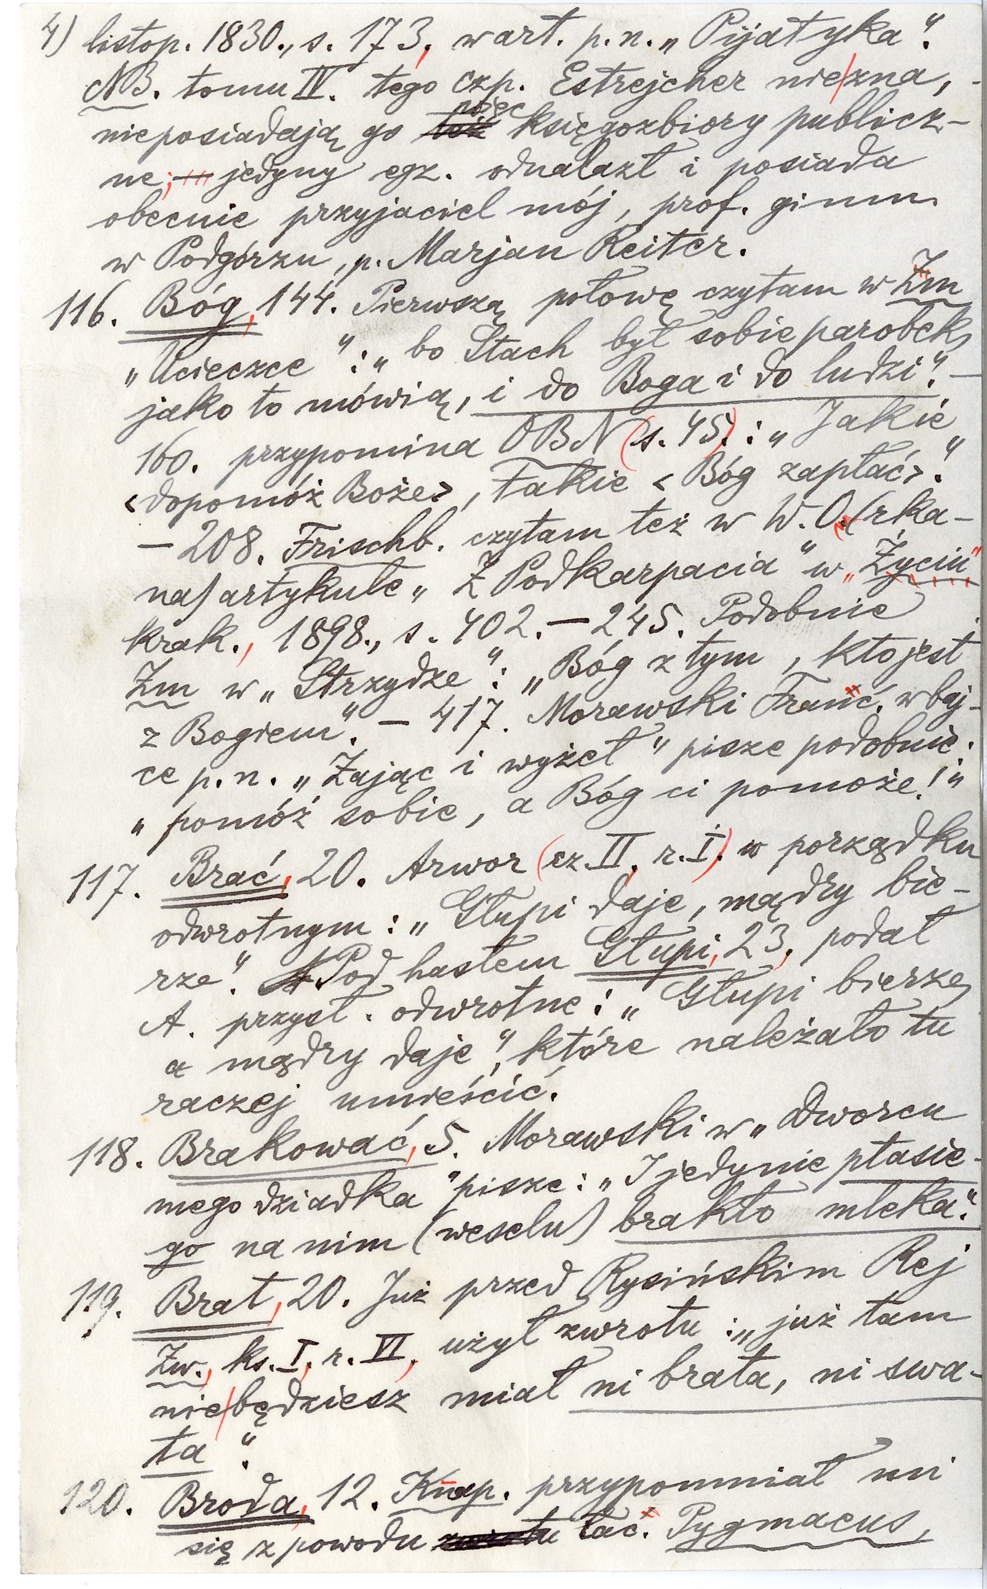 4) listop. 1830., s. 173, w art. p. n. „Pijatyka”.
NB. tomu IV. tego czp. Estrejcher nie zna, -
nieposiadają go więc księgozbiory publicz-
ne; — jedyny egz. odnalazł i posiada
obecnie przyjaciel mój, prof. gimn.
w Podgórzu, p. Marjan Reiter.
116. Bóg, 144. Pierwszą połowę czytam w Zm
„Ucieczce”: „bo Stach był sobie parobek,
jako to mówią, i do Boga i do ludzi”. —
160. przypomina OBN (s. 45): „Jakie
<dopomóż Boże>, takie <Bóg zapłać>.”
— 208. Frischb. czytam też w W. Orka-
na) artykule „Z Podkarpacia” w „Życiu”
krak., 1898., s. 402. — 245. Podobnie
Zm w „Strzydze”: „Bóg z tym, kto jest
z Bogiem”. — 417. Morawski Franc. w baj-
ce p. n. „Zając i wyżeł” pisze podobnie:
„pomóż sobie, a Bóg ci pomoże!”
117. Brać, 20. Arwor (cz. II, r. I). w porządku
odwrotnym: „Głupi daje, mądry bie-
rze”. Pod hasłem Głupi, 23, podał
A. przysł. odwrotne: „Głupi bierze,
a mądry daje”, które należało tu
raczej umieścić.
118. Brakować, 5. Morawski w „Dworcu
mego dziadka” pisze: „I jedynie ptasie-
go na nim (weselu) brakło mleka”.
119. Brat, 20. Już przed Rysińskim Rej
Zw., ks. I, r. VI, użył zwrotu: „już tam
nie będziesz miał ni brata, ni swa-
ta”.
120. Broda, 12. Knap. przypomniał mi
się z powodu łac. Pygmaeus,